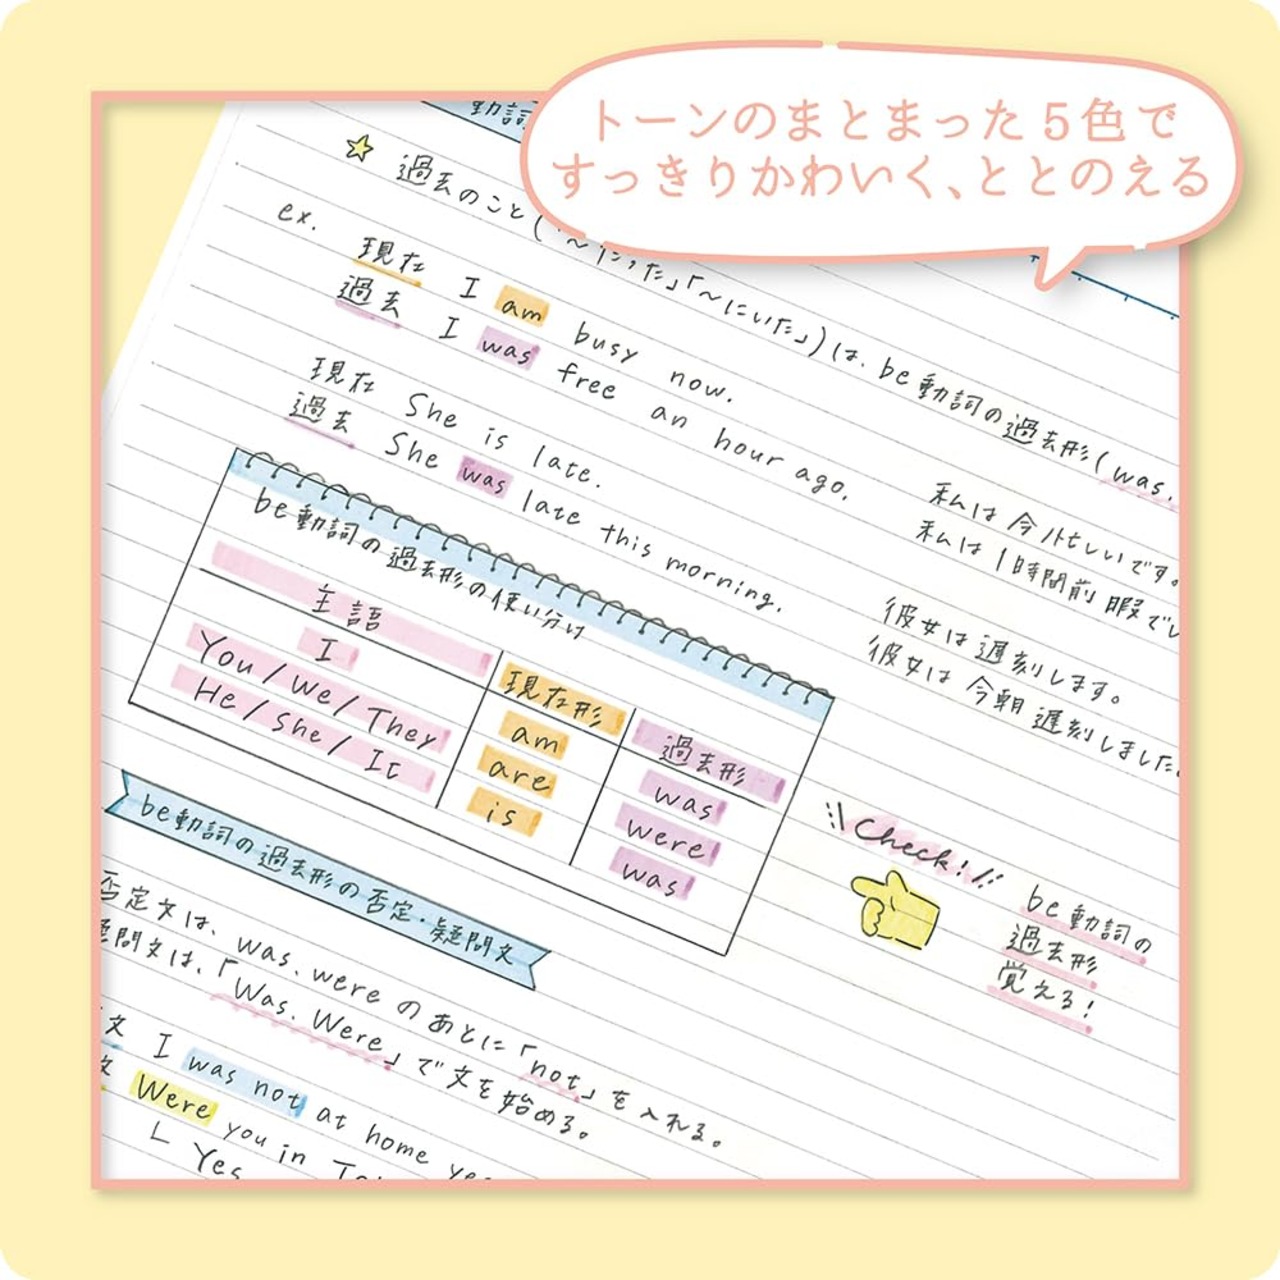 トーンのまとまった5色で
すっきりかわいく、ととのえる
動詞
過去のこと(「〜だった」「〜にいた」)は、be動詞の過去形(was.
ex.
現在 I am busy now.
過去 I was free an hour ago.
私は今忙しいです。
私は1時間前暇でし
現在 She is late.
過去 She was late this morning.
彼女は遅刻します。
彼女は今朝遅刻しました。
be動詞の過去形の使い分け
主語 現在形 過去形
I am was
You/We/They are were
He/She/It is was
Check!
be動詞の
過去形
覚える!
be動詞の過去形の否定・疑問文
否定文は、was.wereのあとに「not」を入れる。
疑問文は、「Was. Were」で文を始める。
文 I was not at home yes
文 Were you in To
Yes